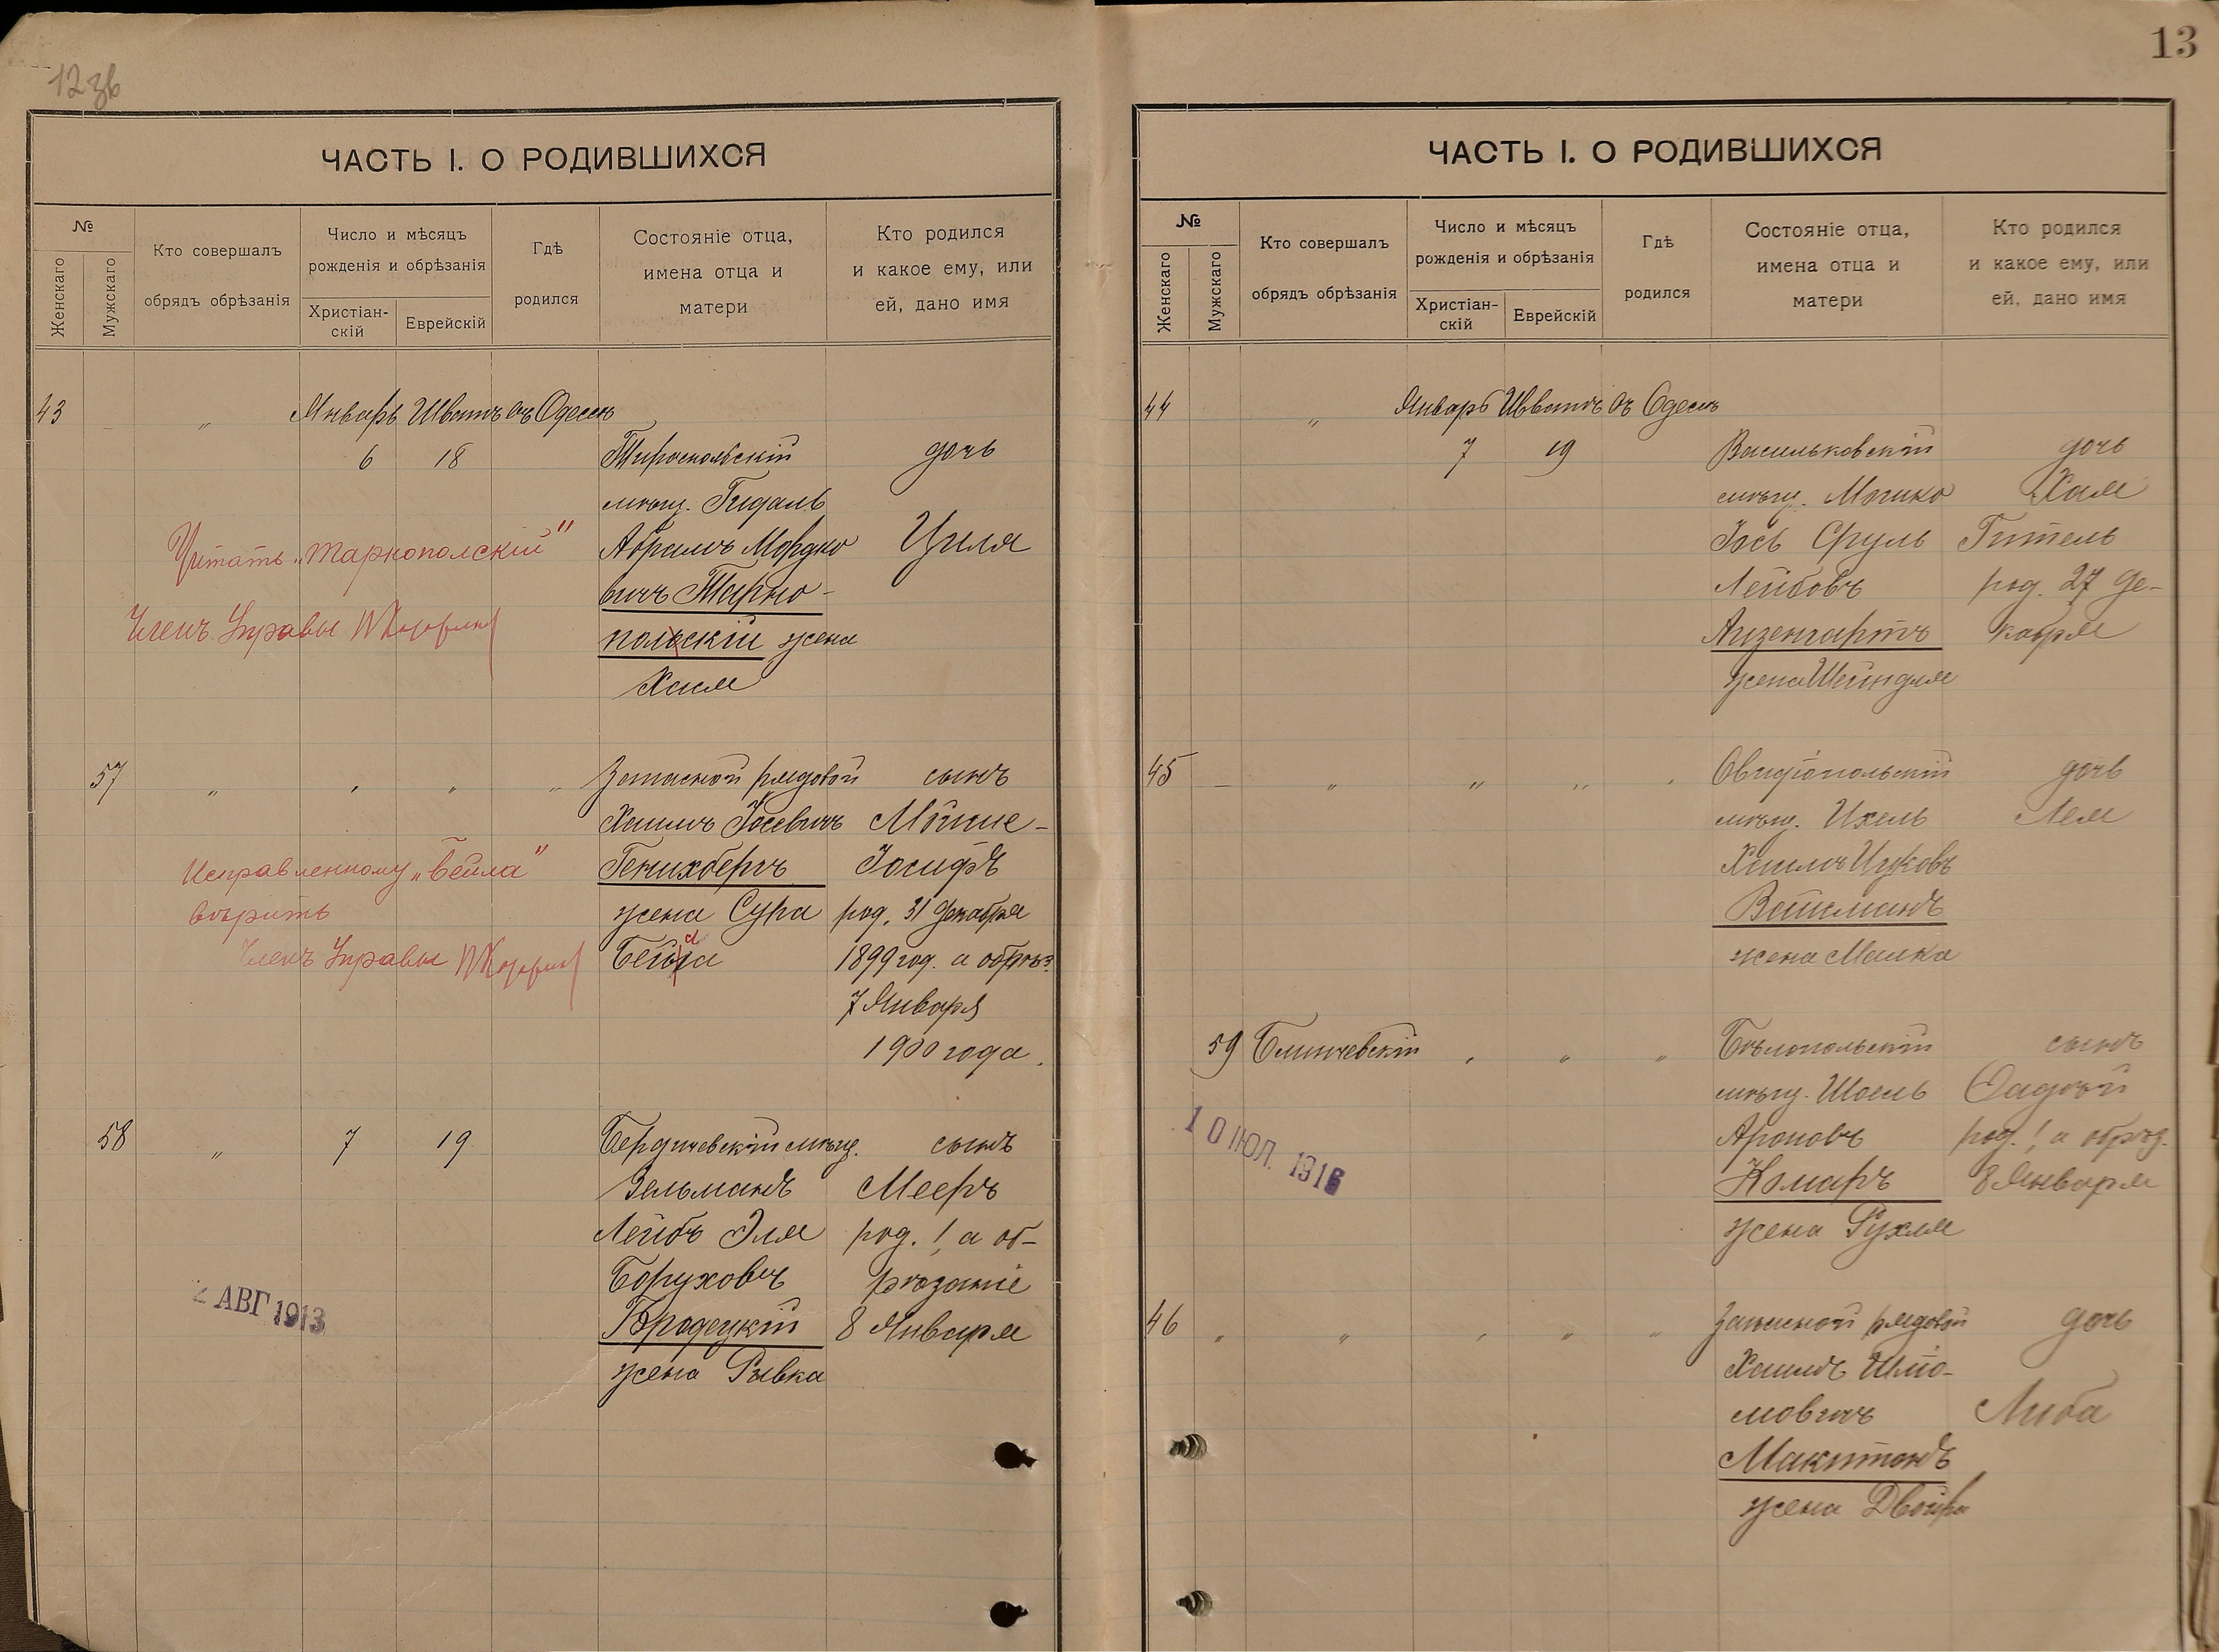 12 зв
ЧАСТЬ I. О РОДИВШИХСЯ
№
Женскаго
Мужскаго
Кто совершалъ
обрядъ обрѣзанія
Число и мѣсяцъ
рожденія и обрѣзанія
Христіан-
скій
Еврейскій
Гдѣ
родился
Состояніе отца,
имена отца и
матери
Кто родился
и какое ему, или
ей, дано имя
43 „ Январь Шватъ въ Одессѣ
6 18 Тираспольскій дочь
мѣщ. Гидаль
Абрамъ Мордко Циля
вичъ Тарно-
польскій жена
Хая
Читать „Тарнополскій"
Членъ Управы
57 „ „ „ „ Запасной рядовой сынъ
Хаимъ Іосевичъ Мойше-
Генихбергъ Іосифъ
жена Сура род. 31 Декабря
Бейла 1899 год. а обрѣз.
7 Января
1900 года.
Исправленному „Бейла"
вѣрить
Членъ Управы
58 „ 7 19 Бердичевскій мѣщ. сынъ
Зельманъ Мееръ
Лейбъ Эля род. 1, а об-
Боруховъ рѣзаніе
Бродецкій 8 Января
жена Рывка
2 АВГ 1913
13
ЧАСТЬ I. О РОДИВШИХСЯ
№
Женскаго
Мужскаго
Кто совершалъ
обрядъ обрѣзанія
Число и мѣсяцъ
рожденія и обрѣзанія
Христіан-
скій
Еврейскій
Гдѣ
родился
Состояніе отца,
имена отца и
матери
Кто родился
и какое ему, или
ей, дано имя
44 „ Январь Шватъ въ Одессѣ
7 19 Васильковскій дочь
мѣщ. Мошко Хая
Іось Сруль Гитель
Лейбовъ род. 27 Де-
Айзенгартъ кабря
жена Шейндля
45 — „ „ „ „ Овидіопольскій дочь
мѣщ. Ихель Лея
Хаимъ Ицковъ
Вайсманъ
жена Малка
59 Блинчевскій „ „ „ Бѣлопольскій сынъ
мѣщ. Шоель Овадей
Ароновъ род. 1, а обрѣз.
Комаръ 8 Января
жена Рухля
10 ІЮЛ. 1916
46 „ „ „ „ „ Запасной рядовой дочь
Хаимъ Шлио-
мовичъ Либа
Макитонъ
жена Двойра